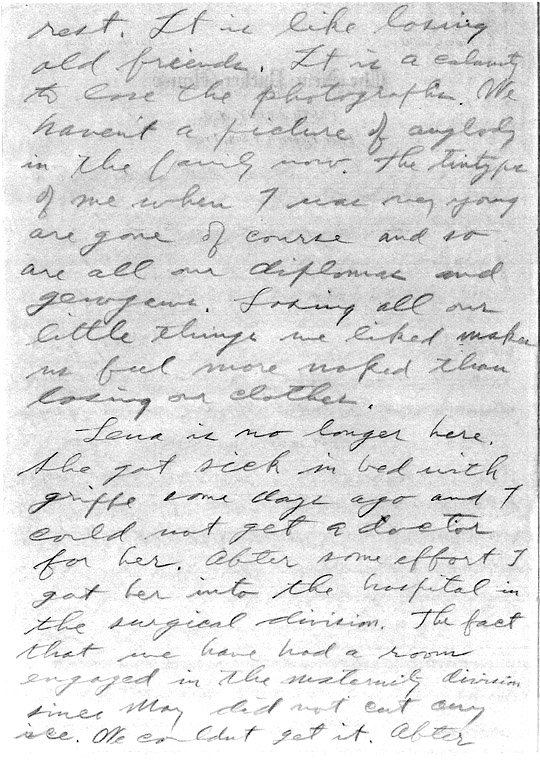 rest. It is like losing
old friends. It is a calamity
to lose the photographs. We
haven't a picture of anybody
in the family now. The tintype
of me when I was very young
are gone of course and so
are all our diplomas and
gewgaws. Losing all our
little things we liked makes
us feel more naked than
losing our clothes.
Lena is no longer here.
She got sick in bed with
grippe some days ago and I
could not get a doctor
for her. After some effort I
got her into the hospital in
the surgical division. The fact
that we have had a room
engaged in the maternity division
since May did not cut any
ice. We couldnt get it. After